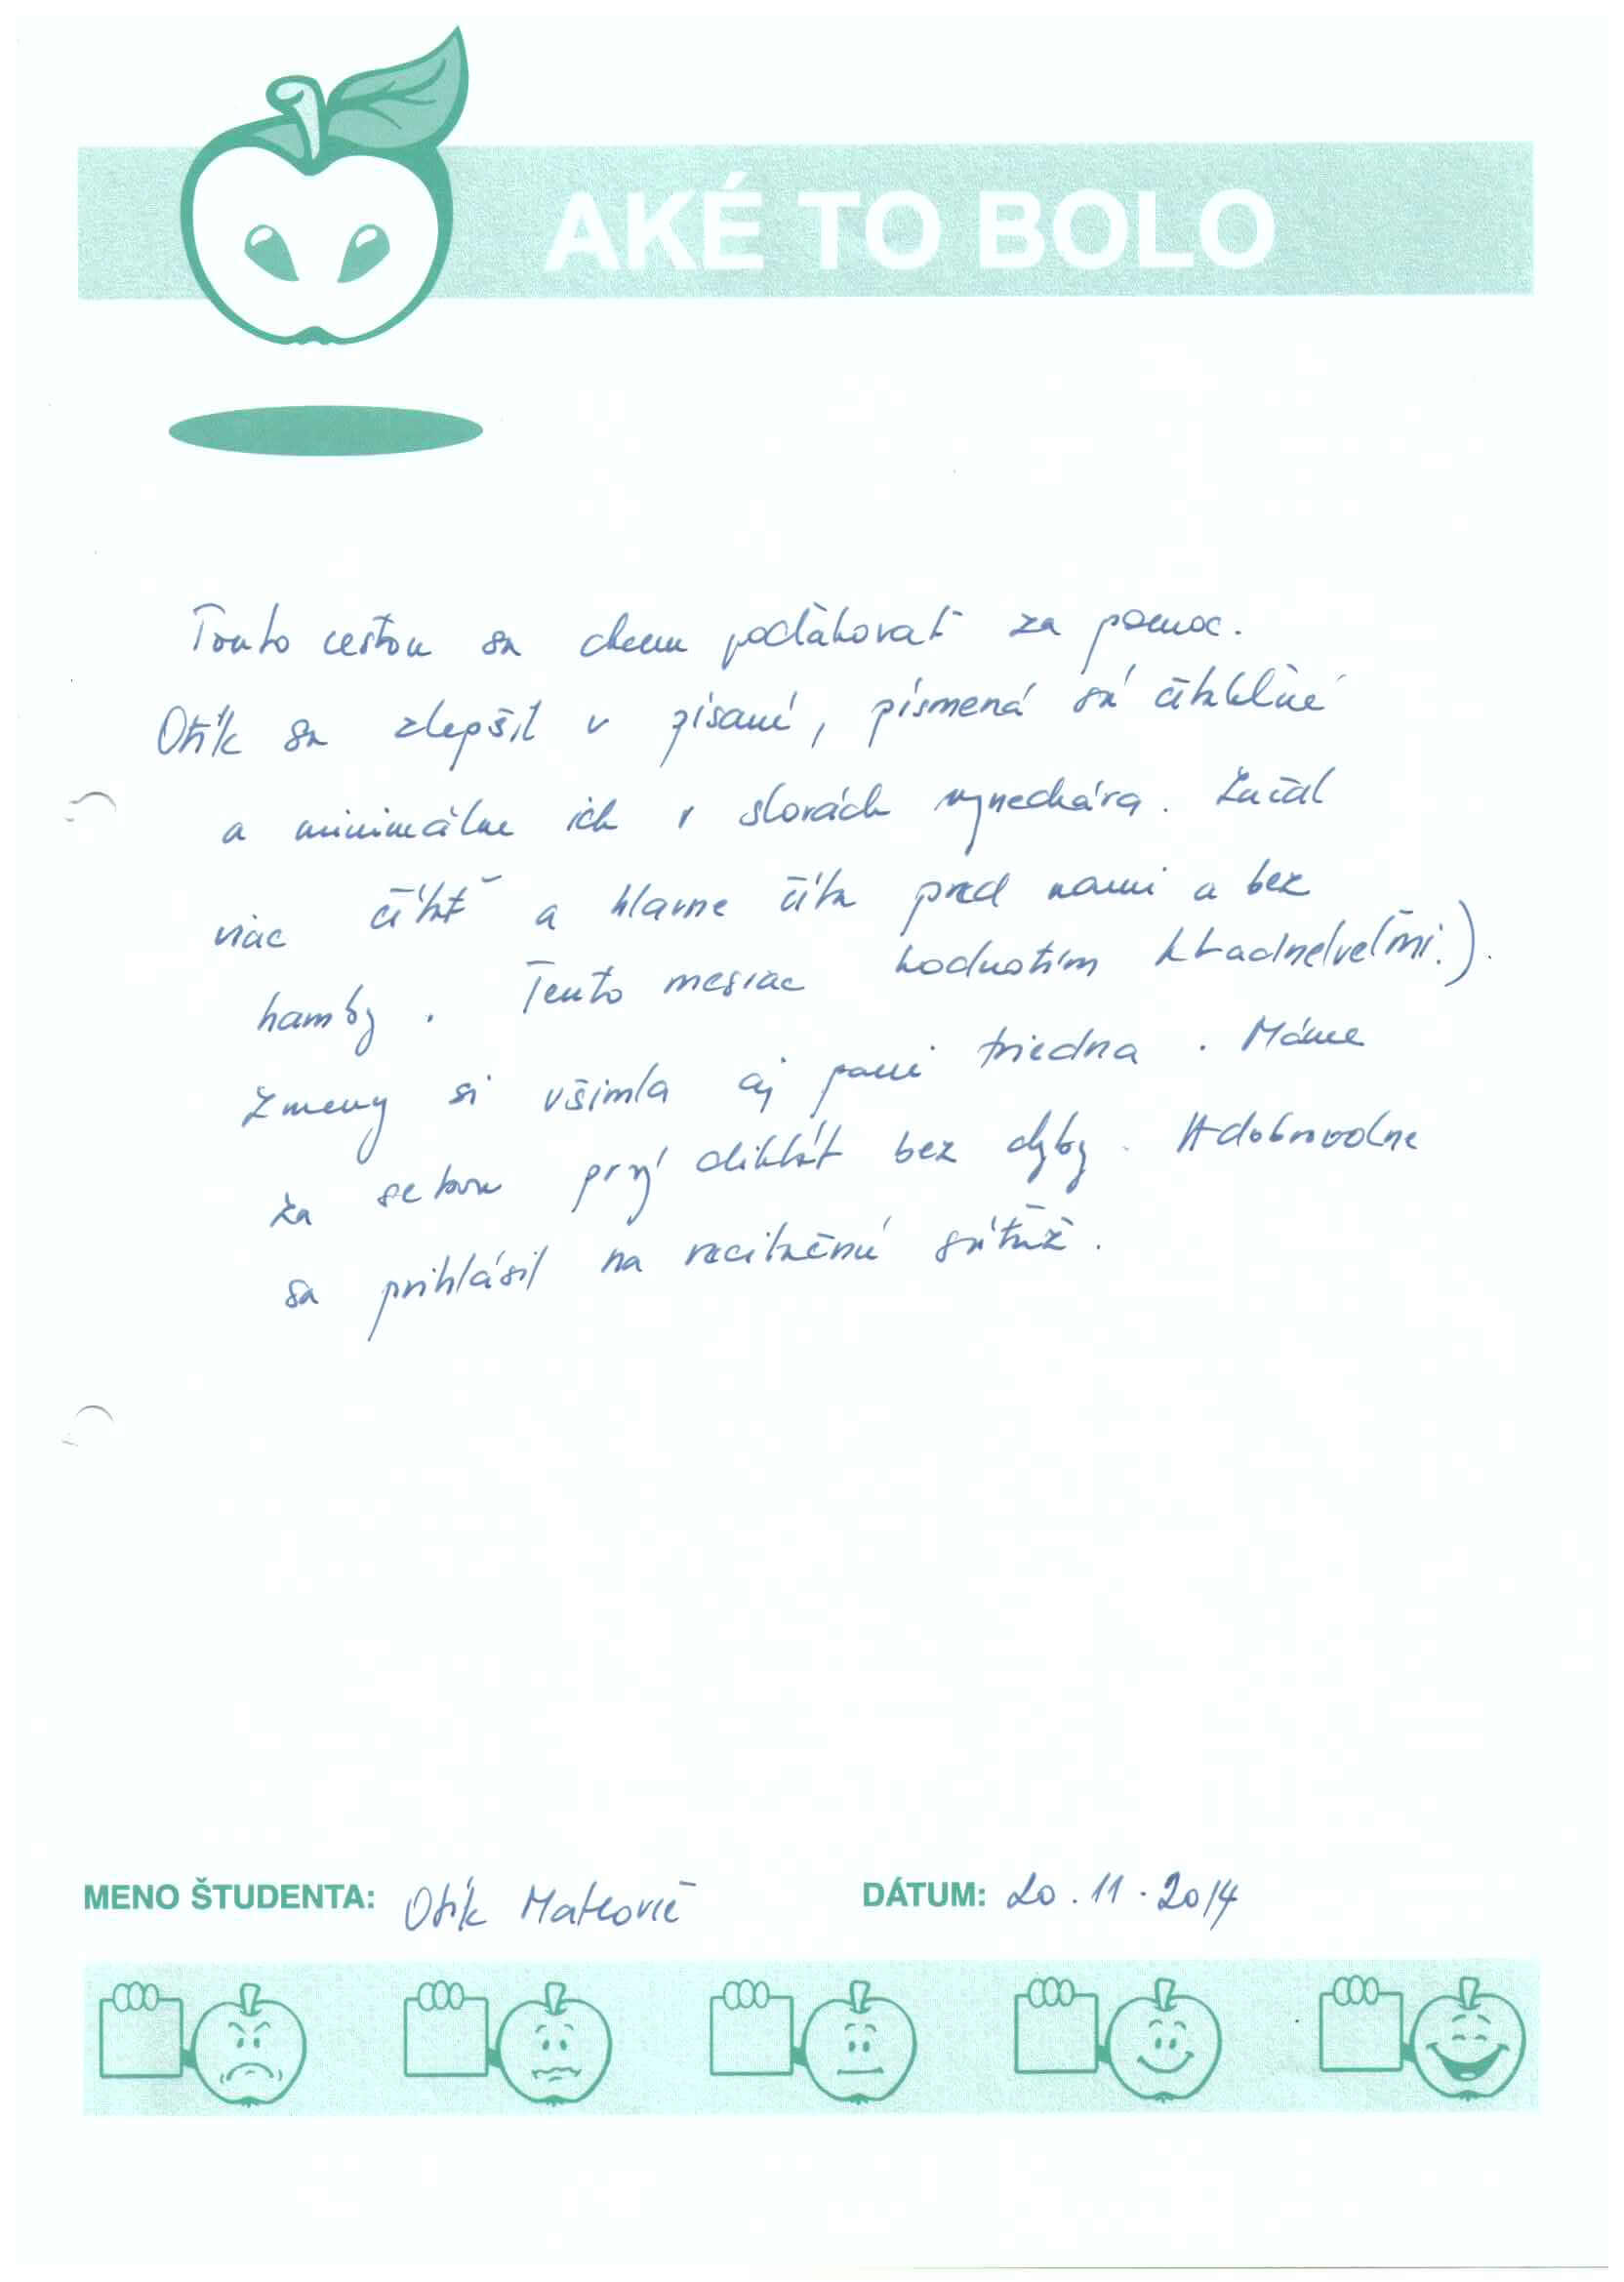 AKÉ TO BOLO
Touto cestou sa chcem poďakovať za pomoc.
Otík sa zlepšil v písaní, písmená sú čitateľné
a minimálne ich v slovách vynecháva. Začal
viac čítať a hlavne číta pred nami a bez
hamby. Tento mesiac hodnotím kladne (veľmi!).
Zmeny si všimla aj pani triedna. Máme
za sebou prvý diktát bez chyby. A dobrovoľne
sa prihlásil na recitačnú súťaž.
MENO ŠTUDENTA: Otík Matkovič DÁTUM: 20.11.2014